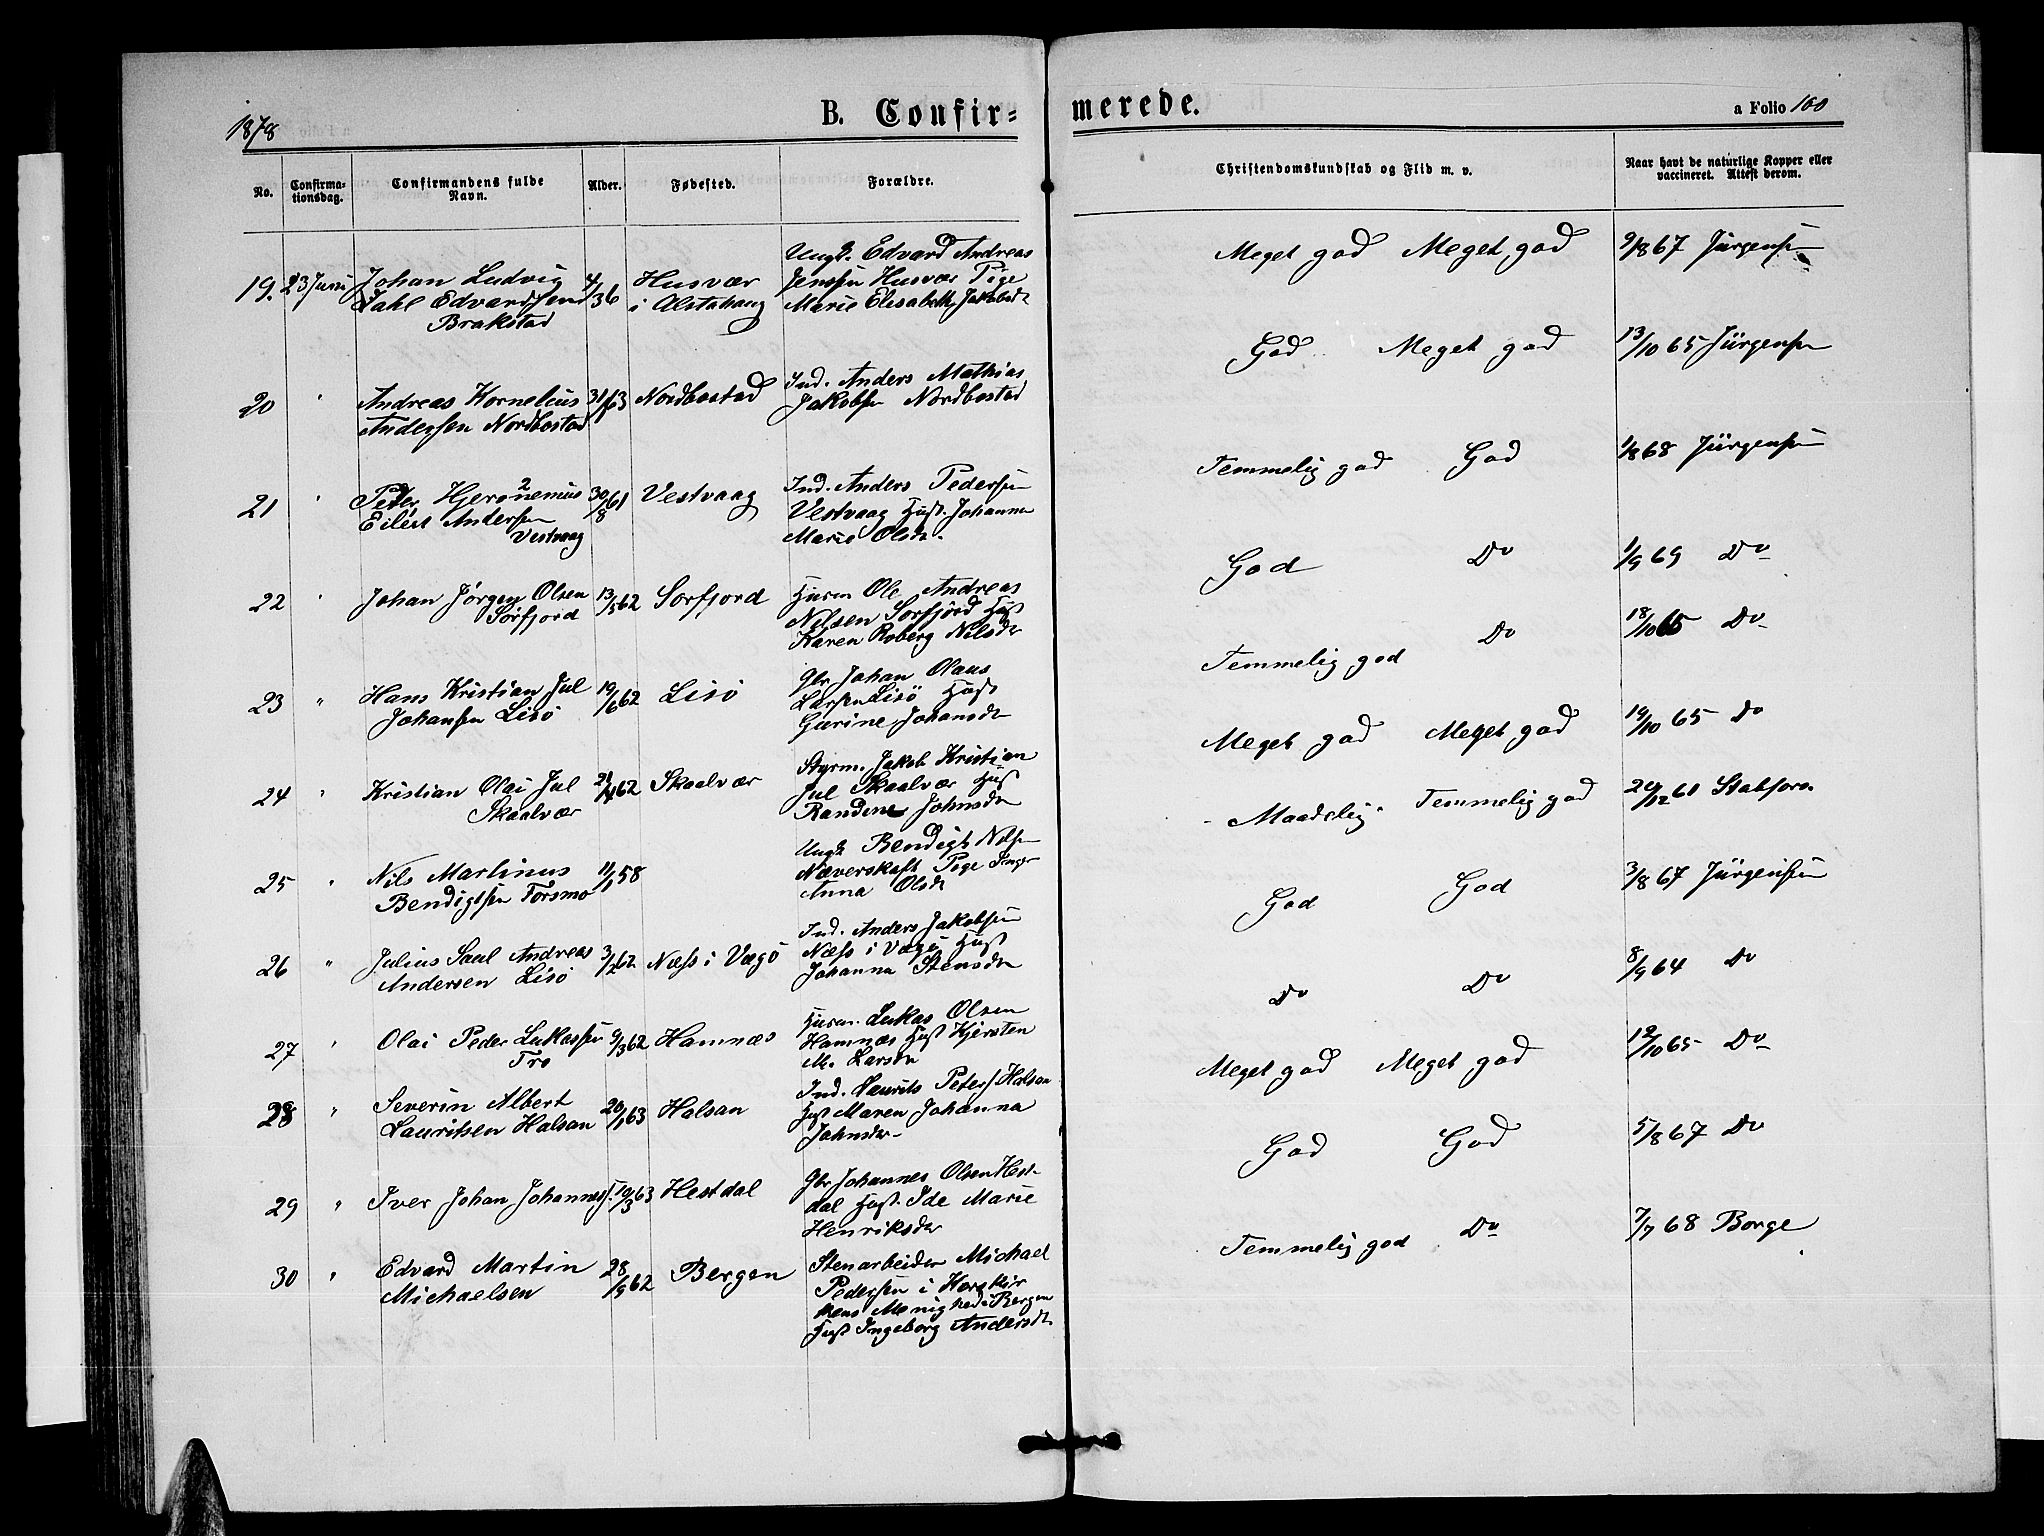 1878
B. Confir=
merede.
a Folio 160
No.
Confirma-
tionsdag.
Confirmandens fulde
Navn.
Alder.
Fødested.
Forældre.
Christendomskundskab og Flid m. v.
Naar havt de naturlige Kopper eller
vaccineret. Attest derom.
19. 23 Juni Johan Ludvig
Dahl Edvardsen
Brakstad
Husvær
i Alstahaug
Ungk. Edvard Andreas
Jenssen Husvær Pige
Marie Elisabeth Jakobsdr
Meget god Meget god 9/8 67 Jürgensen
20 " Andreas Kornelius
Andersen Nordbostad
Nordbostad
Ind. Anders Mathias
Jakobsen Nordbostad
God Meget god 13/10 65 Jürgensen
21 " Peder Hjeronemus
Eilert Andersen
Vestvaag
30/8 61 Vestvaag
Ind. Anders Pedersen
Vestvaag Hust. Johanna
Marie Olsdr.
Temmelig god God 1/8 68 Jürgensen
22 " Johan Jørgen Olsen
Sørfjord
13/5 62 Sørfjord
Husm Ole Andreas
Nilsen Sørfjord Hust
Karen Roberg Nilsdr
God Do 1/9 69 Do
23 " Hans Kristian Jul
Johansen Lisø
19/6 62 Lisö
Gbr Johan Olaus
Larsen Lisö Hust
Gurine Johansdr
Temmelig god Do 18/10 65 Do
24 " Kristian Olai Jul
Skaalvær
21/4 62 Skaalvær
Styrm. Jakob Kristian
Jul Skaalvær Hust
Randine Johnsdr
Meget god Meget god 19/10 65 Do
25 " Nils Martinus
Bendigtsen Forsmo
11/1 58
Ungk Bendigt Nilsen
Næverskaft Pige Inger
Anna Olsdr
Maadelig Temmelig god 29/12 61 Stabfors.
26 " Julius Saul Andreas
Andersen Lisö
3/2 62 Næss i Vægö
Ind. Anders Jakobsen
Næss i Vægö Hust
Johanna Stensdr
God God 3/8 67 Jürgensen
27 " Olai Peder Lukassen
Tro
9/3 62 Hamnæs
Husm. Lukas Olsen
Hamnæs Hust Kjersten
M. Larsdr
Do Do 8/9 64 Do
28 " Severin Albert
Lauritsen Halsan
20/1 63 Halsan
Ind. Laurits Peters. Halsan
Hust Maren Johanna
Johnsdr
Meget god Meget god 12/10 65 Do
29 " Iver Johan Johanness. 19/3 63 Hestdal
Gbr Johannes Olsen Hest-
dal Hust. Ide Marie
Henriksdr
God God 5/8 67 Do
30 " Edvard Martin
Michaelsen
28/9 62 Bergen
Stenarbeider Michael
Pedersen i Korskir
kens Menighed i Bergen
Hust Ingeborg Andersdr
Temmelig god Do 7/7 68 Borge